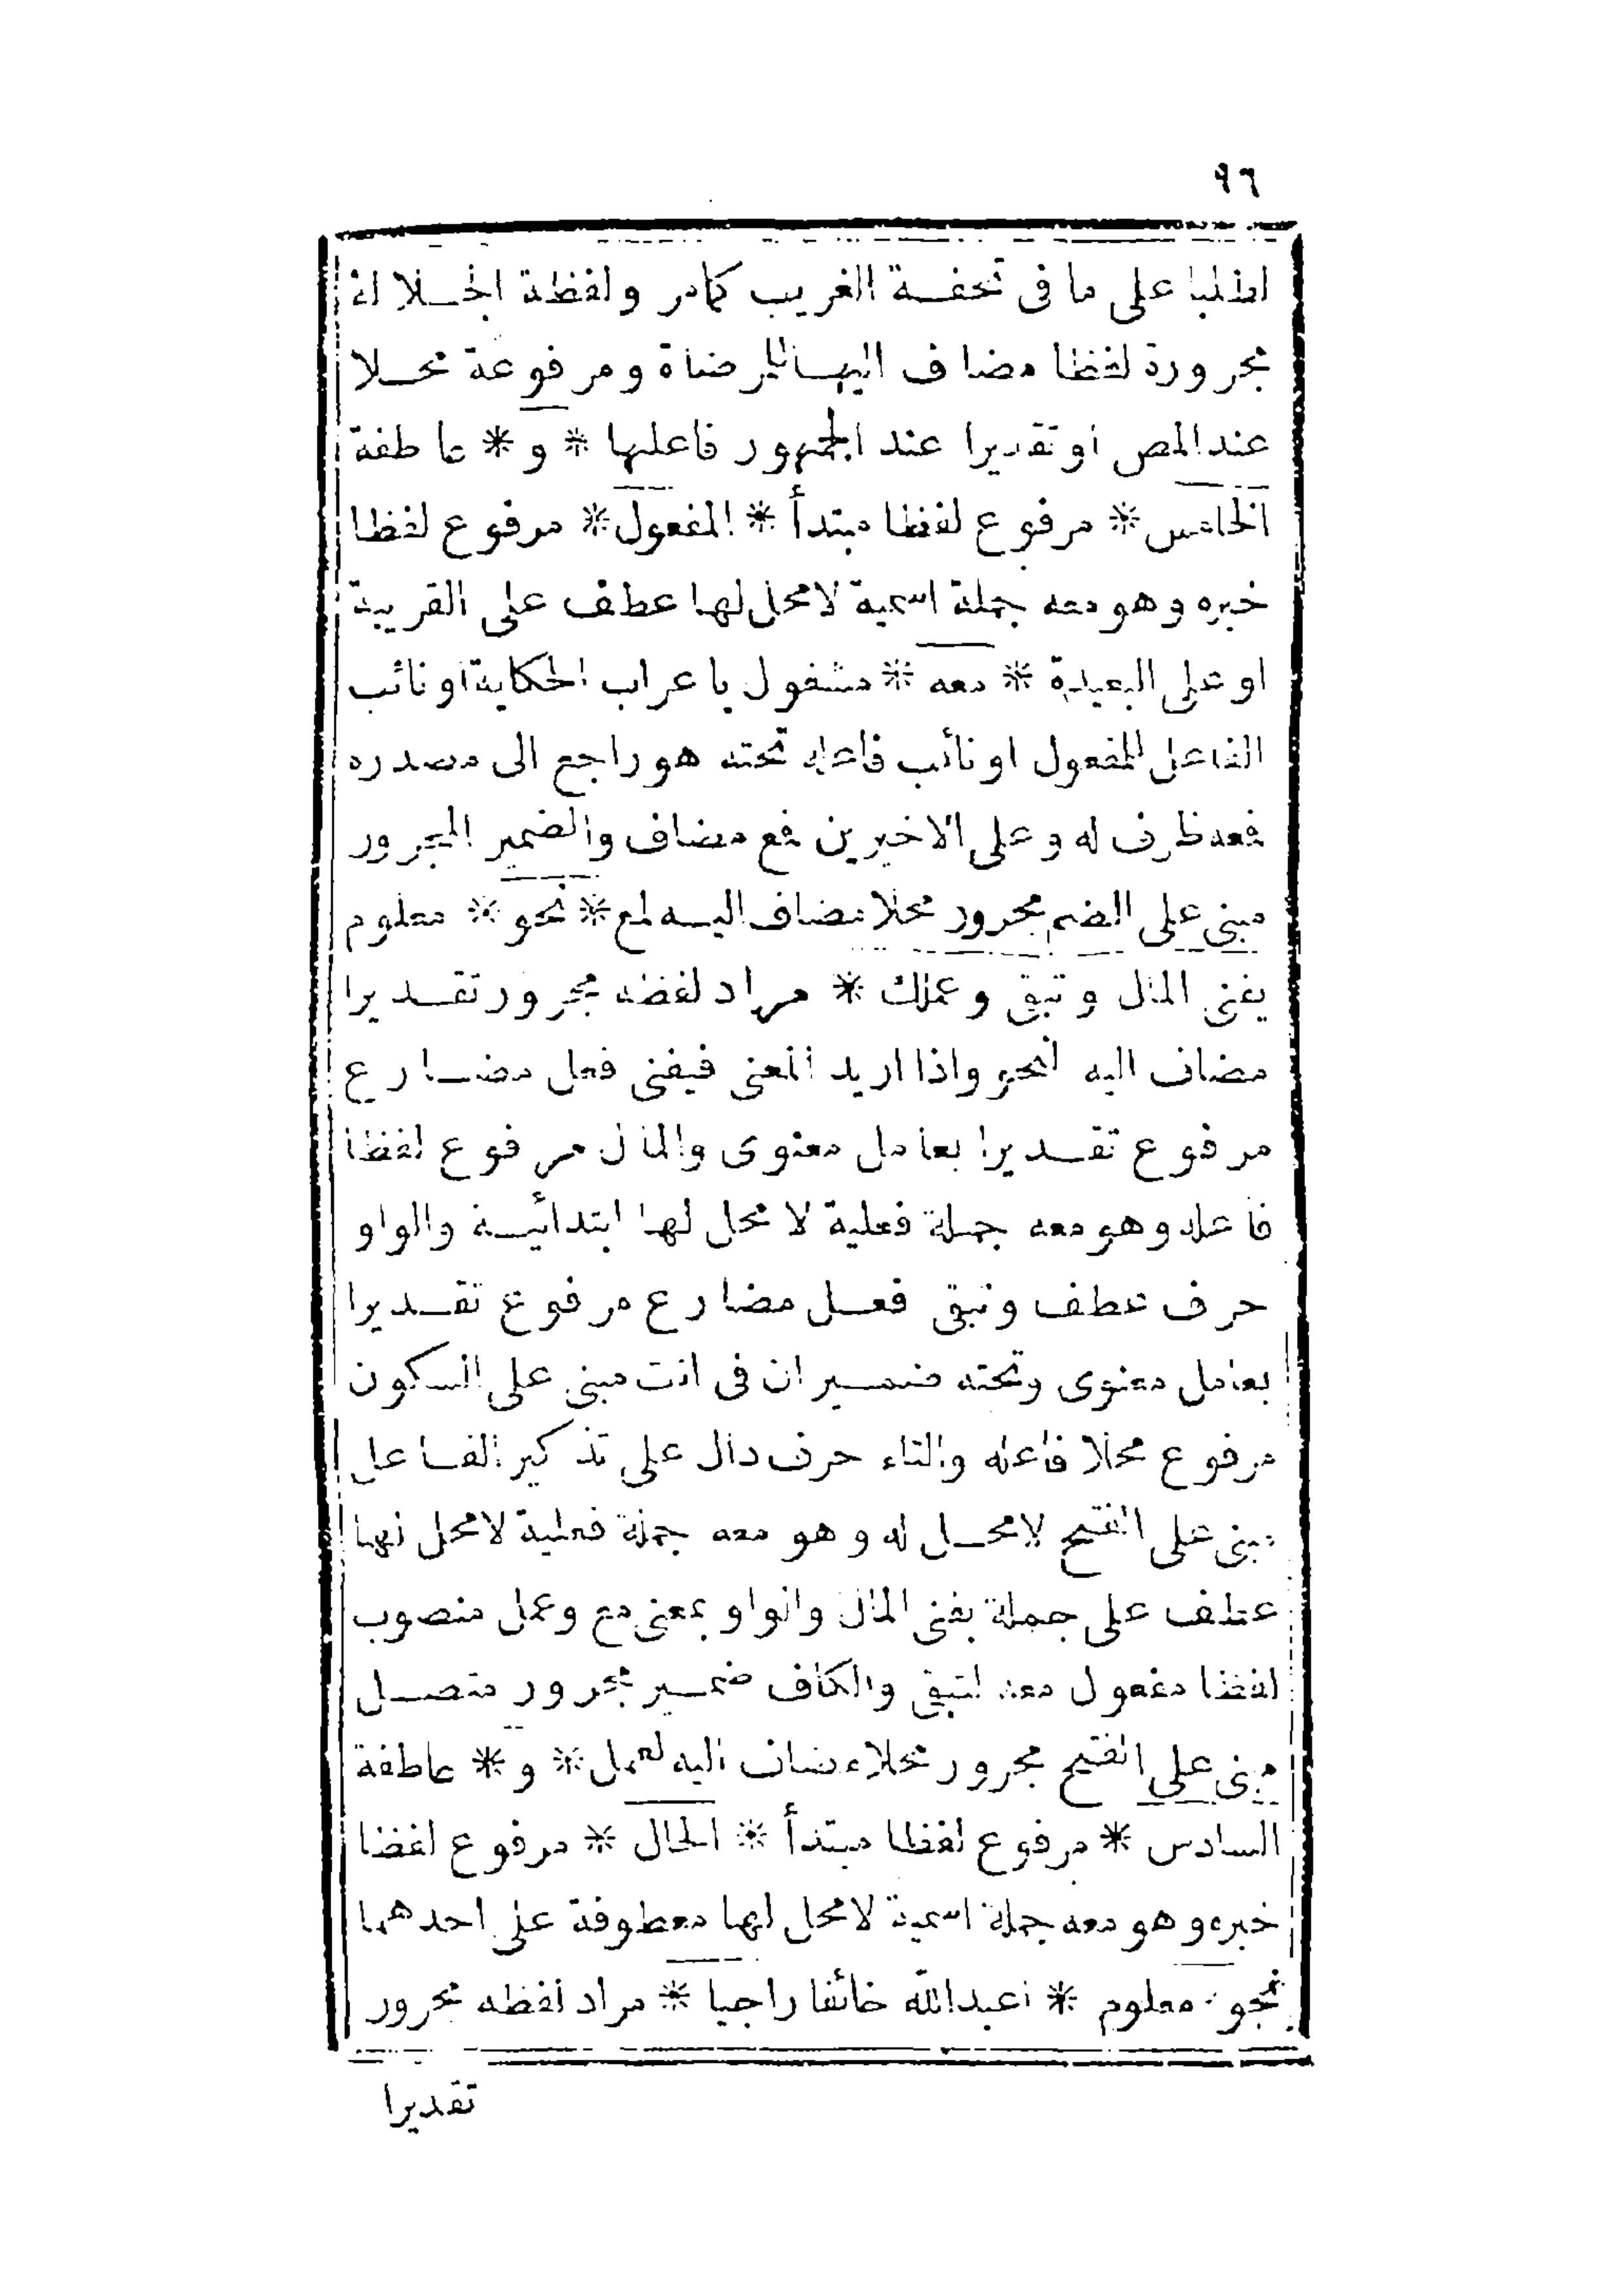 ٩٦
لفظا على ما فى تحفة الغريب كمامر ولفظة الجلالة
مجرورة لفظا مضاف اليها لمرضاة ومرفوعة محلا
عند المص او تقديرا عند الجمهور فاعلها * و * عاطفة
الخامس * مرفوع لفظا مبتدأ * المفعول * مرفوع لفظا
خبره وهو معه جملة اسمية لا محل لها عطف على القريبة
او على البعيدة * معه * مشغول باعراب الحكاية او نائب
الفاعل للمفعول او نائب فاعله تحته هو راجع الى مصدره
فمعه ظرف له وعلى الاخيرين فمع مضاف والضمير المجرور
مبنى على الضم مجرور محلا مضاف اليه لمع * نحو * معلوم
يفنى المال وتبقى وعملك * مراد لفظه مجرور تقديرا
مضاف اليه لنحو واذا اريد المعنى فيفنى فعل مضارع
مرفوع تقديرا بعامل معنوى والمال مرفوع لفظا
فاعله وهو معه جملة فعلية لا محل لها ابتدائية والواو
حرف عطف وتبقى فعل مضارع مرفوع تقديرا
بعامل معنوى وتحته ضمير ان فى انت مبنى على السكون
مرفوع محلا فاعله والتاء حرف دال على تذكير الفاعل
مبنى على الفتح لا محل له وهو معه جملة فعلية لا محل لها
عطف على جملة يفنى المال والواو بمعنى مع وعمل منصوب
لفظا مفعول معه لتبقى والكاف ضمير مجرور متصل
مبنى على الفتح مجرور محلا مضاف اليه لعمل * و * عاطفة
السادس * مرفوع لفظا مبتدأ * الحال * مرفوع لفظا
خبره وهو معه جملة اسمية لا محل لها معطوفة على احدهما
نحو معلوم * اعبد الله خائفا راجيا * مراد لفظه مجرور
تقديرا